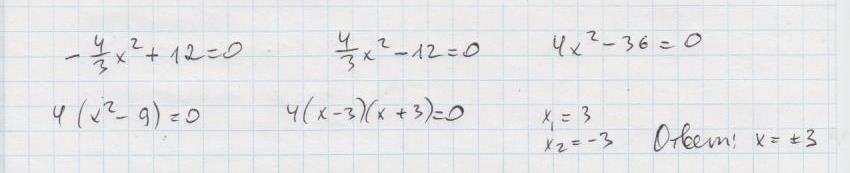 -4/3 x² + 12 = 0   4/3 x² - 12 = 0   4x² - 36 = 0
4(x² - 9) = 0   4(x - 3)(x + 3) = 0   x₁ = 3
x₂ = -3   Ответ: x = ±3